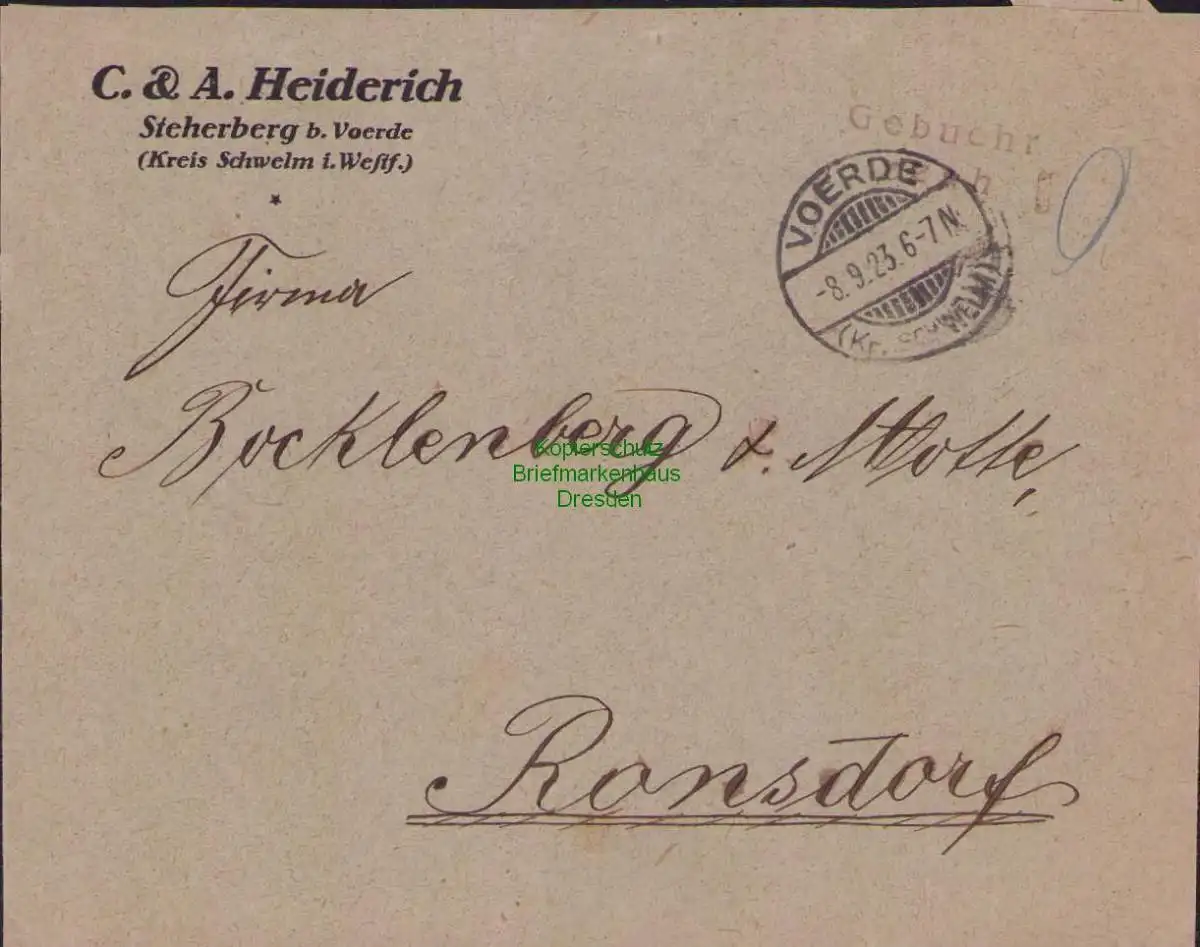 C. & A. Heiderich
Steherberg b. Voerde
(Kreis Schwelm i. Westf.)
Gebühr
VOERDE
-8.9.23. 6-7 N.
(Kr. SCHWELM)
Firma
Bocklenberg & Motte,
Kopierschutz
Briefmarkenhaus
Dresden
Ronsdorf